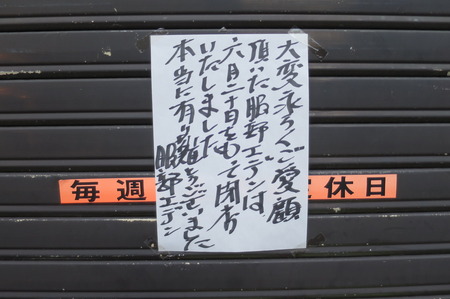 大変永らくご愛顧
頂いた服部エデンは
六月二十日をもって閉店
いたしました
本当に有り難うございました
服部エデン
毎週
定休日